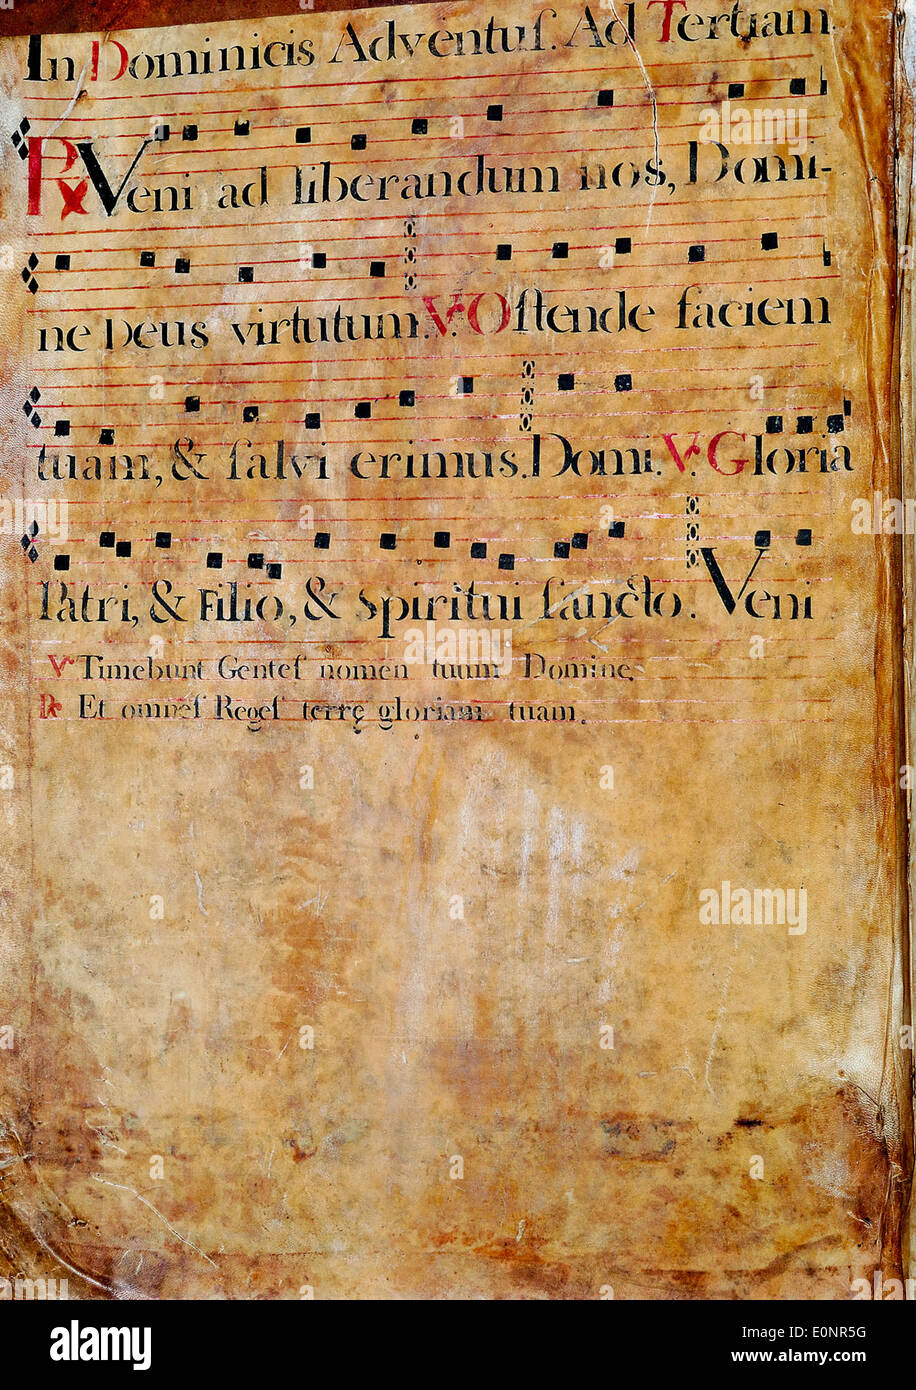 In Dominicis Adventuſ. Ad Tertiam
℟ Veni ad liberandum nos, Domi-
ne Deus virtutum. ℣. Oſtende faciem
tuam, & ſalvi erimus. Domi. ℣. Gloria
Patri, & Filio, & Spiritui ſancto. Veni
℣ Timebunt Genteſ nomen tuum Domine.
℟ Et omneſ Regeſ terrę gloriam tuam.
alamy
Image ID: E0NR5G
www.alamy.com